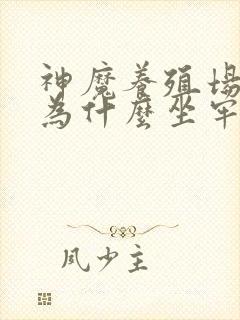 神魔養殖場
為什麼坐牢
風少主